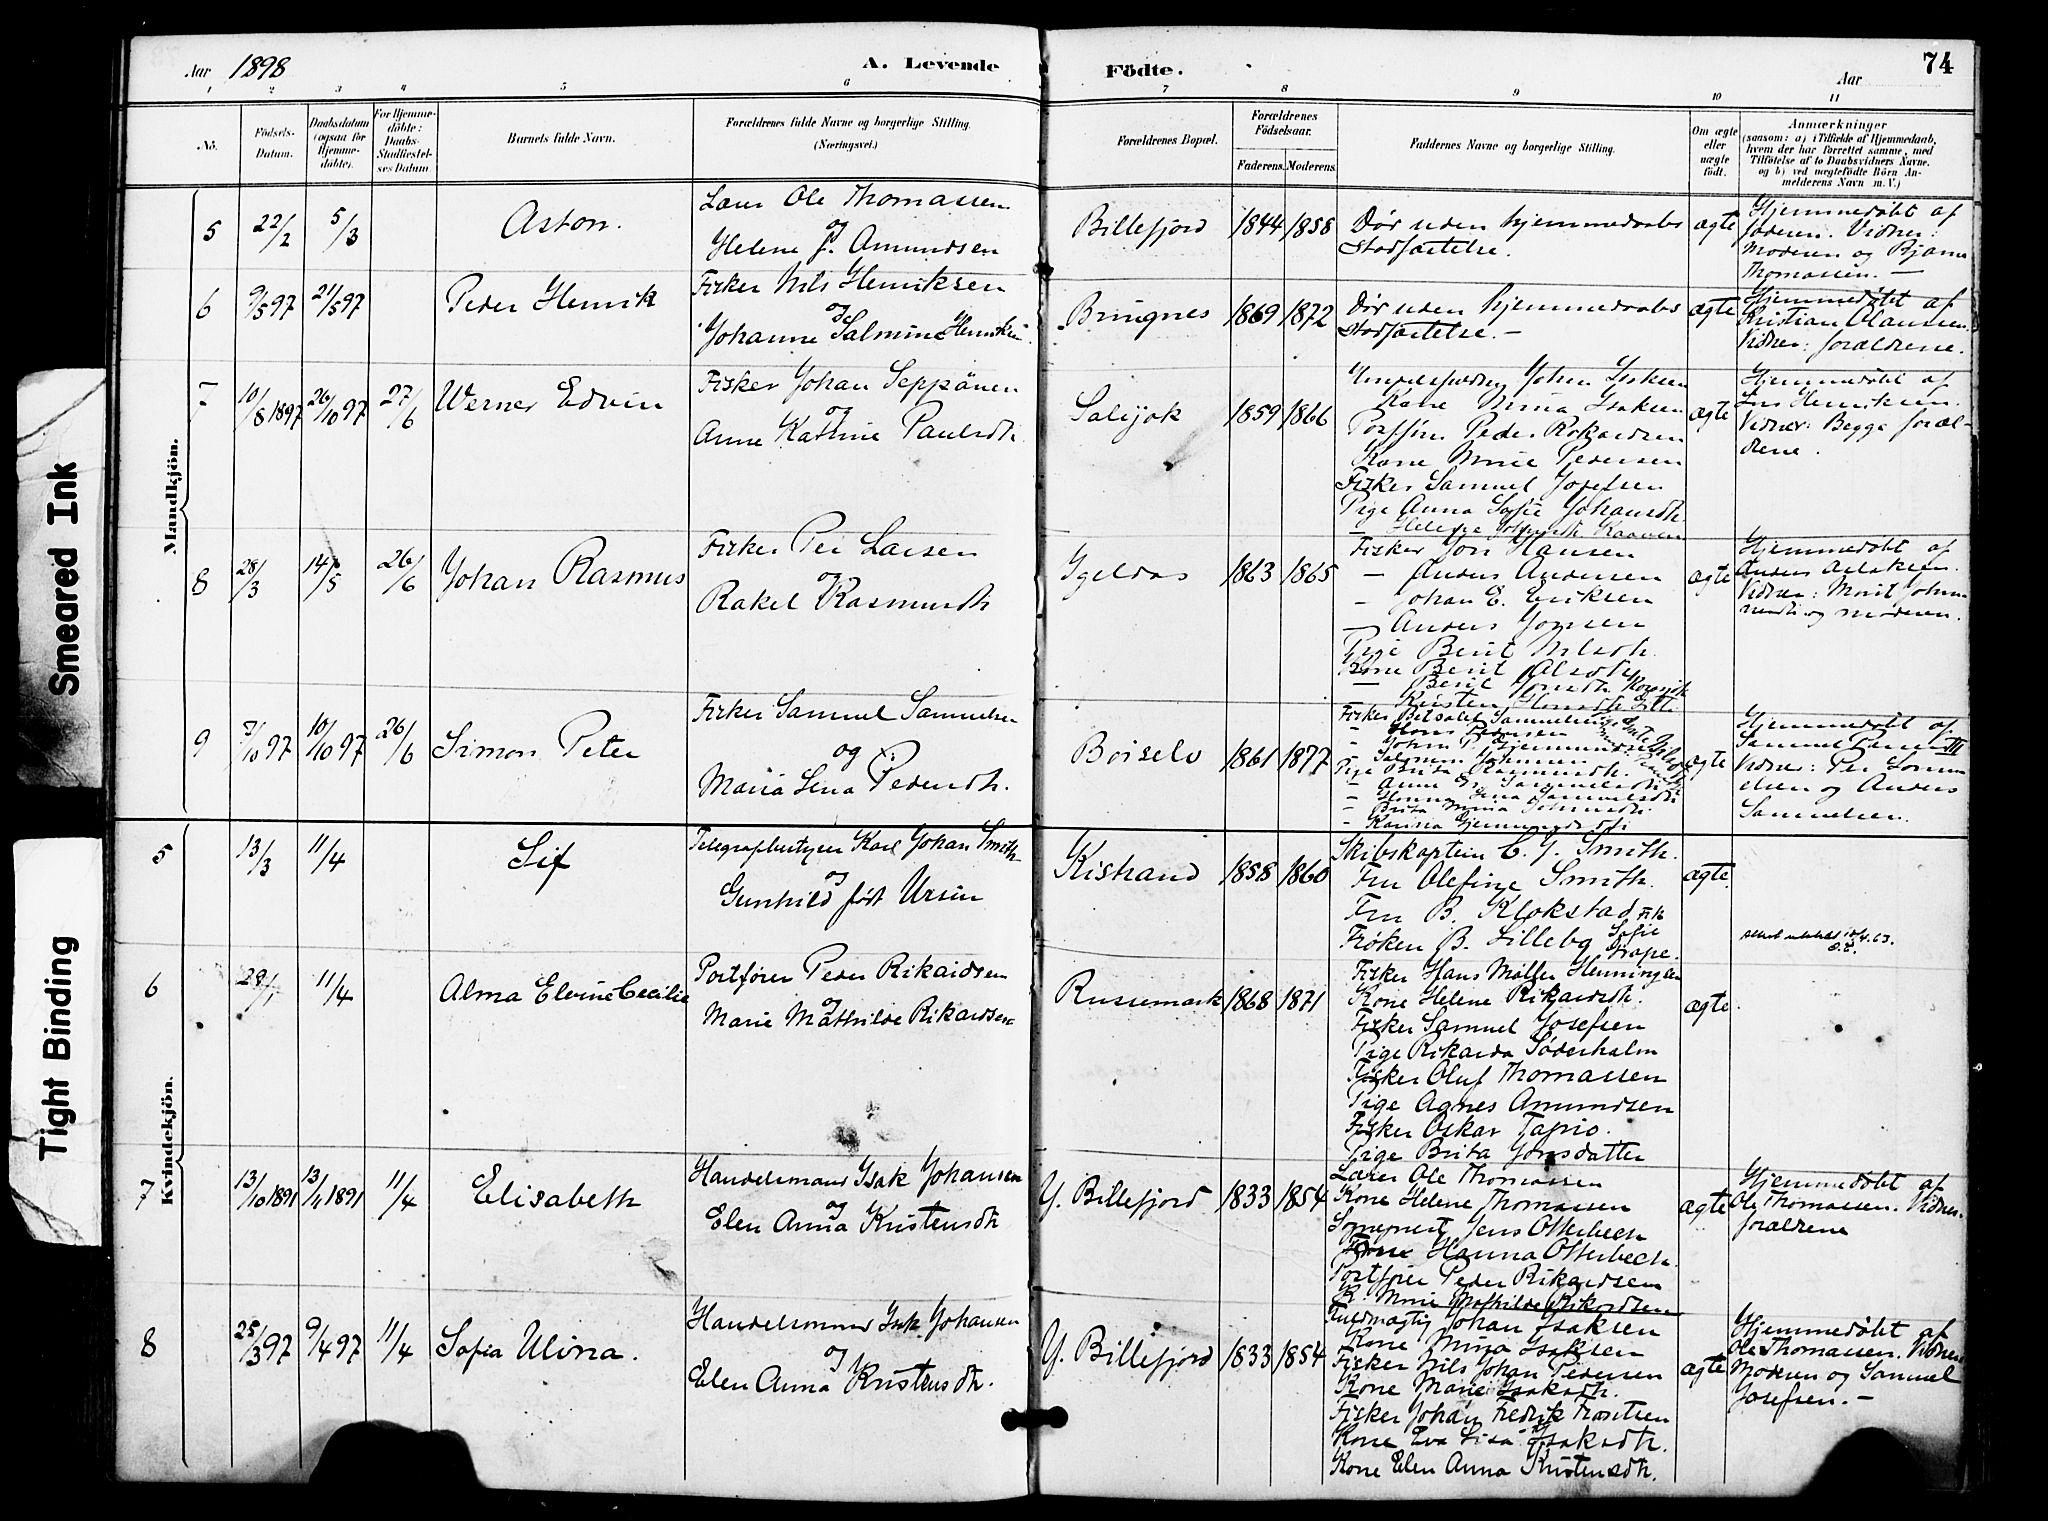 Smeared Ink
Tight Binding
Aar 1898
A. Levende
Födte.
Aar
74
1 2 3 4 5 6 7 8 9 10 11
No.
Födsels-
Datum.
Daabsdatum
(ogsaa för
Hjemme-
döbte).
For Hjemme-
döbte:
Daabs-
Stadfæstel-
ses Datum.
Barnets fulde Navn.
Forældrenes fulde Navne og borgerlige Stilling.
(Næringsvei.)
Forældrenes Bopæl.
Forældrenes
Födselsaar.
Faderens. Moderens.
Faddernes Navne og borgerlige Stilling.
Om ægte
eller
uægte
födt.
Anmærkninger
(saasom: a) i Tilfælde af Hjemmedaab,
hvem der har forrettet samme, med
Tilföielse af to Daabsvidners Navne.
og b) ved uægtefödte Börn An-
melderens Navn m. V.)
Mandkjön.
5 22/2 5/3 Aston.
Lærer Ole Thomassen
og
Helene J. Amundsen
Billefjord 1844 1858
Dør uden hjemmedaabs
Stadfæstelse.
ægte
Hjemmedøbt af
faderen. Vidner:
Moderen og Bjarne
Thomassen. —
6 9/5 97 21/5 97 Peder Henrik
Fisker Nils Henriksen
og
Johanne Salmine Henriksen
Bringnes 1869 1872
Dør uden hjemmedaabs
Stadfæstelse. —
ægte
Hjemmedøbt af
Kristian Olausen.
Vidner: forældrene.
7 10/8 1897 26/10 97 27/6 Werner Edvin
Fisker Johan Seppänen
og
Anne Kathrine Paulsdtr.
Salijok 1859 1866
Johan Isaksen
Kone Mina Isaksen
Postfører Peder Rikardsen
Kone Marie Pedersen
Fisker Samuel Josefsen
Pige Anna Sofie Johansdtr.
ægte
Hjemmedøbt af
Henriksen.
Vidner: Begge foræl-
drene.
8 28/3 14/5 26/6 Johan Rasmus
Fisker Per Larsen
og
Rakel Rasmusdtr.
Igeldas 1863 1865
Fisker Jon Hansen
— Anders Andersen
— Johan E. Eriksen
— Anders Jonsen
Pige Berit Nilsdtr.
Kone Berit Olsdtr
— Berit Jonsdtr
ægte
Hjemmedøbt af
Anders Aslaksen.
Vidner: Marit Johan-
nesdtr. og moderen.
9 7/10 97 10/10 97 26/6 Simon Peter
Fisker Samuel Samuelsen
og
Maria Lena Pedersdtr.
Børselv 1861 1877
Fisker Samuelsen
" Hans Pedersen
" Salomon Johansen
Pige Brita Rasmusdtr.
ægte
Hjemmedøbt af
Samuel III
Vidner: Per Samu-
elsen og Anders
Samuelsen.
Kvindekjön.
5 13/3 11/4 Sif
Telegrafbestyrer Karl Johan Smith
og
Gunhild født Ursin
Kistrand 1858 1860
Skibskaptein C. J. Smith.
Fru Olefine Smith.
Fru B. Klokstad, Frk
Frøken B. Lillebø Sofie
Drape.
ægte.
attest utstedt 10/4.63.
6 29/1 11/4 Alma Elvine Cecilie
Postfører Peder Rikardsen
og
Marie Mathilde Rikardsen
Russemark 1868 1871
Fisker Hans Møller Henningsen
Kone Helene Rikardsdtr.
Fisker Samuel Josefsen
Pige Rikarda Søderholm
Fisker Oluf Thomassen
Pige Agnes Amundsen
Fisker Oskar Tapio.
Pige Brita Jonsdatter
ægte
7 13/10 1891 13/11 1891 11/4 Elisabeth
Handelsmand Isak Johansen
og
Elen Anna Kristensdtr.
Y. Billefjord 1833 1854
Lærer Ole Thomassen
Kone Helene Thomassen
Jens Otterbech
Hanna Otterbech.
Postfører Peder Rikardsen
K. Marie Mathilde Rikardsen
ægte
Hjemmedøbt af
Ole Thomassen. Vidner:
forældrene
8 25/3 97 9/4 97 11/4 Sofia Ulina.
Handelsmand Isak Johansen
og
Elen Anna Kristensdtr.
Y. Billefjord 1833 1854
Fuldmægtig Johan Isaksen
Kone Mina Isaksen
Fisker Nils Johan Pedersen
Kone Marie Isaksdtr.
Fisker Johan Fredrik Frantsen
Kone Eva Lisa Isaksdtr.
Kone Elen Anna Kristensdtr.
ægte
Hjemmedøbt af
Ole Thomassen. Vidner:
Moderen og Samuel
Josefsen. —